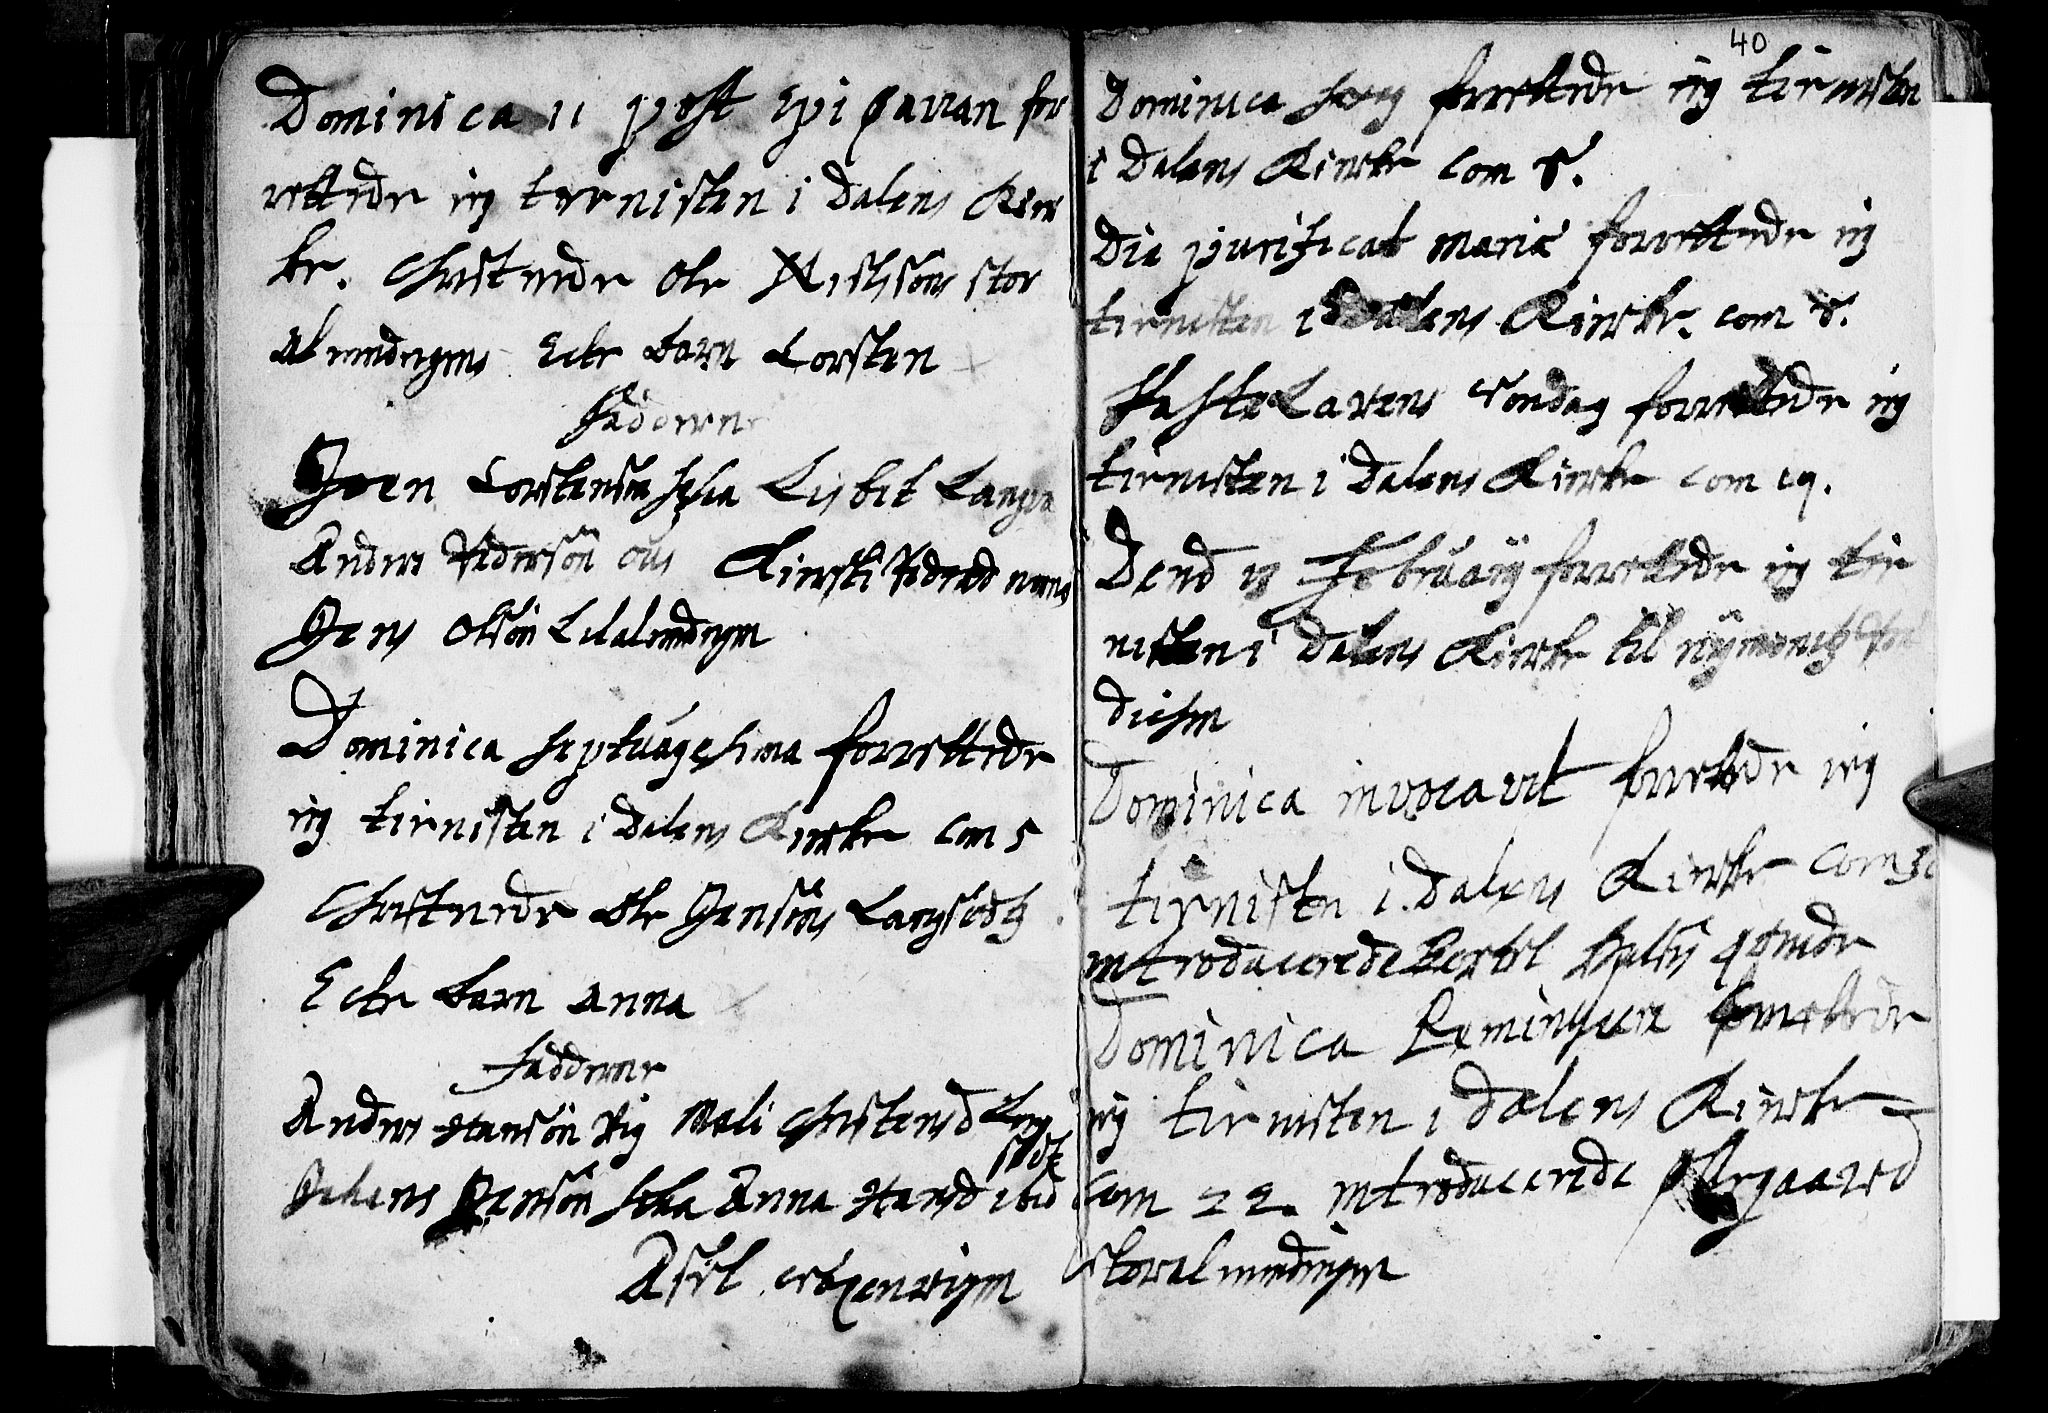 Dominica 11 post Epi for
rettede ieg tiernisten i Dalens Kier
ke. Christnede Ole Nielssöns stor
almindigens Ecte barn Torsten
fadderne
Joen Torstensön Lisbet Langva
Anders Pedersön ous Kiersti Pedersd
Jens Olsön Lilalmindigen
Dominica septuagesima forrettede
ieg tiernisten i Dalens Kircke Com 5
Christnede Ole Jensöns Langsödtz
Ecte barn Anna
Fadderne
Anders Hansön Rig Mali Christensd Lang
södtz
Johans Jensön Anna Hansd ibid
Axel
40
Dominica forrettede ieg tiernisten
i Dalens Kircke Com 8.
Die purificat mariæ forrettede ieg
tiernisten i Dalens Kircke. com 8.
Fastelavens Söndag forrettede ieg
tiernisten i Dalens Kircke com 19.
Dend 13 February forrettede ieg tier
nisten i Dalens Kircke til
diesen
Dominica invocavit forrettede ieg
tiernisten i Dalens Kircke Com
introducerede Bertel qvinde
Dominica Reminiscere forrettede
ieg tiernisten i Dalens Kircke
Com 22. introducerede
storalmindingen